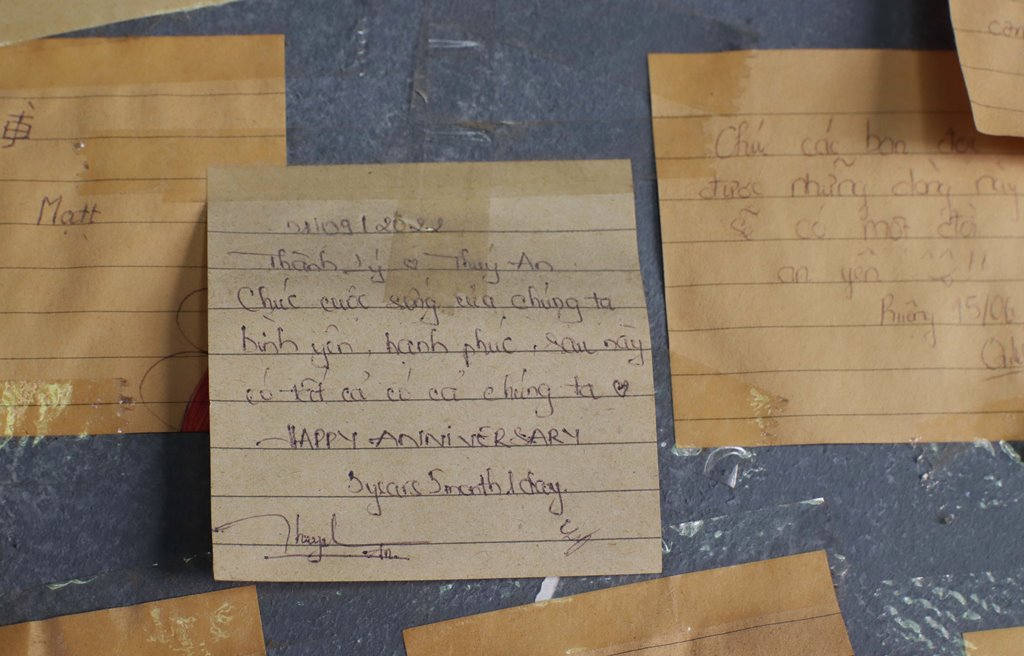 Matt
01/09/2022
Thành Lý ♡ Thuý An
Chúc cuộc sống của chúng ta
bình yên, hạnh phúc, sau này
có tất cả có cả chúng ta ♡
HAPPY ANNIVERSARY
5 years 5 month 1 day.
Chúc các bạn đọc
được những dòng này
sẽ có một đời
an yên
15/06